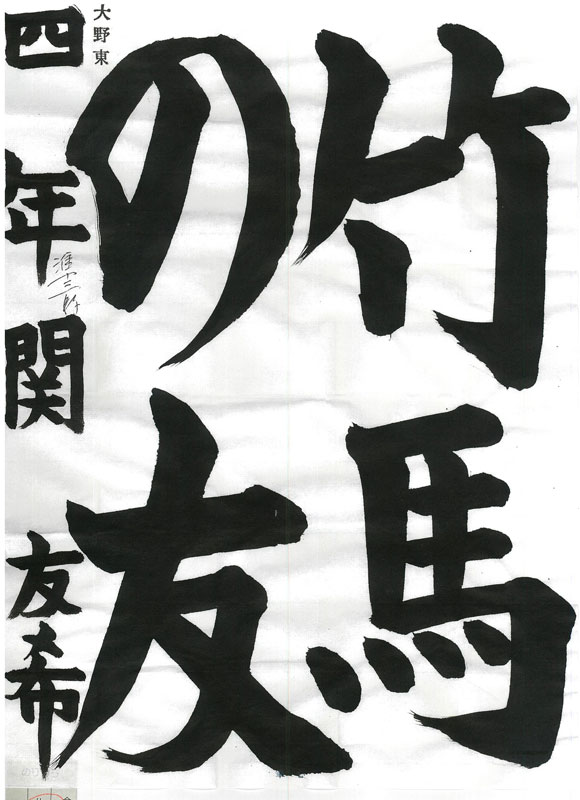 竹馬
の友
大野東
四年関友希